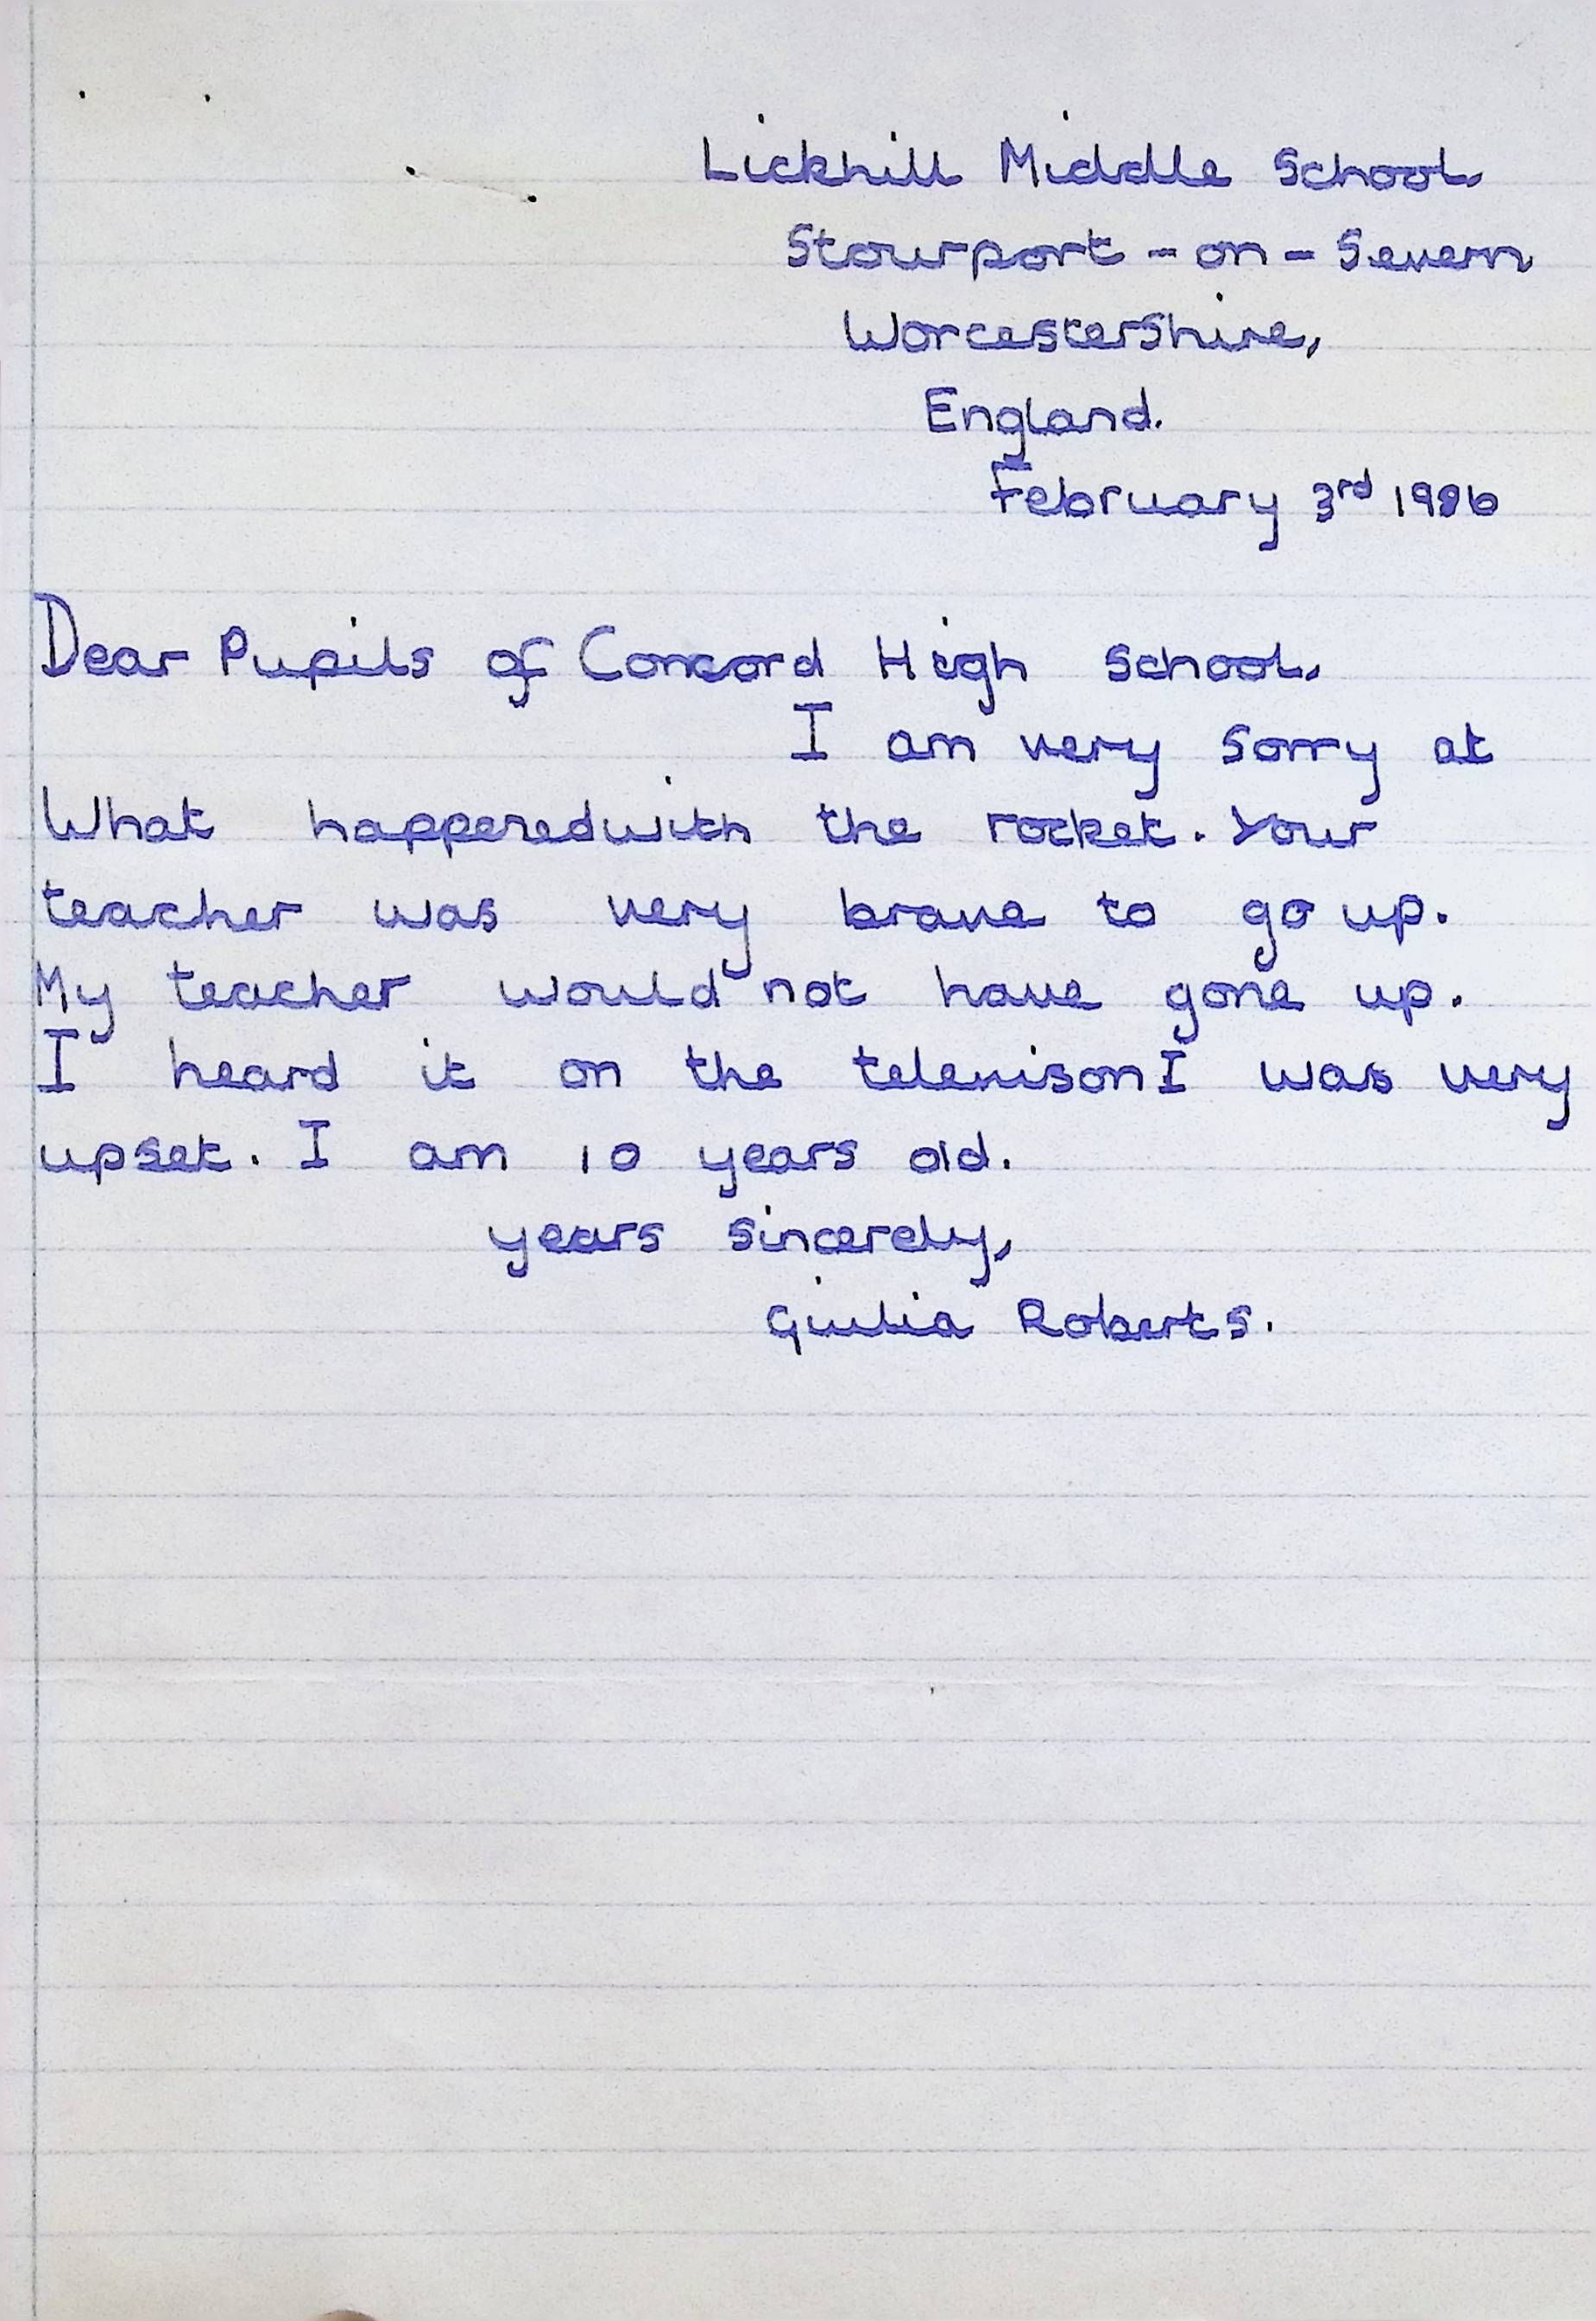 Lickhill Middle School,
Stourport - on - Severn
Worcestershire,
England.
February 3rd 1986
Dear Pupils of Concord High School,
I am very sorry at
What happenedwith the rocket. Your
teacher was very brave to go up.
My teacher would not have gone up.
I heard it on the televison I was very
upset. I am 10 years old.
years sincerely,
Giulia Roberts.